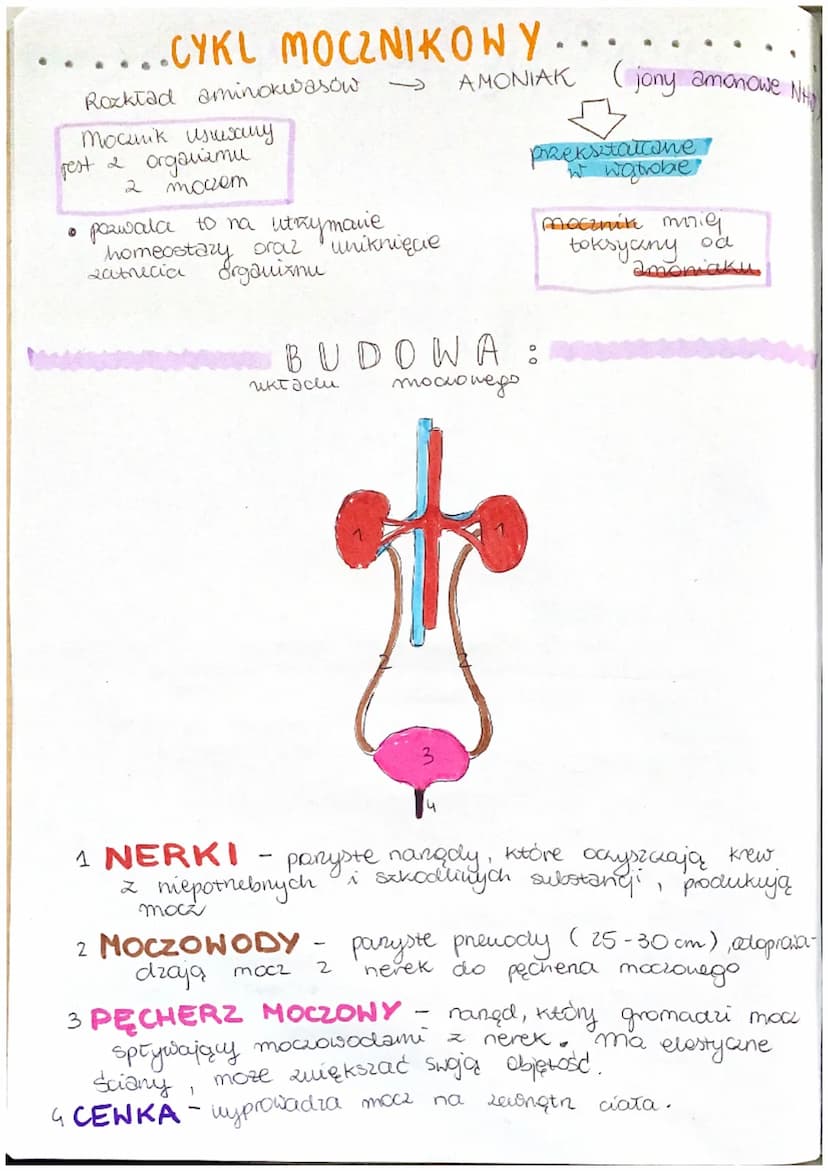 CYKL MOCZNIKOWY
Rozkład aminokwasów → AMONIAK (jony amonowe NH₄
Mocznik usuwany
jest z organizmu
z moczem
przekształcane
w wątrobie
• pozwala to na utrzymanie
homeostazy oraz uniknięcie
zatrucia organizmu
mocznik mniej
toksyczny od
amoniaku
BUDOWA:
układu moczowego
1 1
2 2
3
4
1 NERKI - parzyste narządy, które oczyszczają krew
z niepotrzebnych i szkodliwych substancji, produkują
mocz
2 MOCZOWODY - parzyste przewody (25-30 cm), odprowa-
dzają mocz z nerek do pęcherza moczowego
3 PĘCHERZ MOCZOWY - narząd, który gromadzi mocz
spływający moczowodami z nerek. Ma elastyczne
ściany, może zwiększać swoją objętość.
4 CEWKA - wyprowadza mocz na zewnątrz ciała.